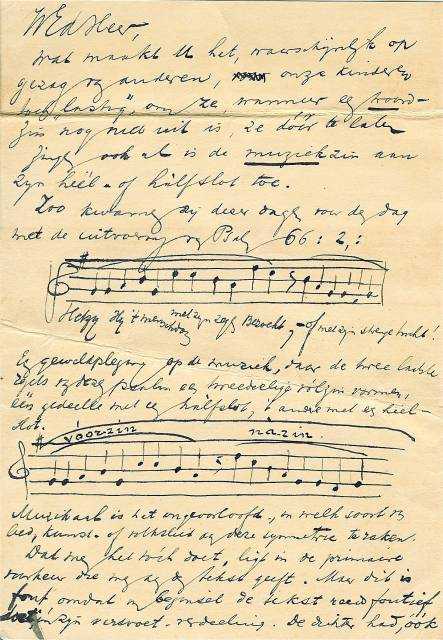 WEd Heer,
Wat maakt U het, waarschijnlijk op
gezag van anderen, onze kinderen
lastig", om ze, wanneer een woord-
zin nog niet uit is, ze dóór te laten
zingen, ook al is de muziekzin aan
zijn héél- of hálfslot toe.
Zoo kwamen zij dezer dagen voor de dag
met de uitvoering van 66: 2,:
Hetzij Hij 't menschdom met zijn zegen Bezocht, - of met zijn strenge tucht!
Een geweldpleging op de muziek, daar de twee laatste
regels van deze psalm een tweedeelige volzin vormen,
één gedeelte met een hálfslot, 't andere met een héél-
slot.
vóórzin nazin.
Muzikaal is het ongeoorloofd, in welk soort van
lied, kunst- of volkslied aan deze symmetrie te raken.
Dat men het tóch doet, ligt in de primaire
voorkeur die men aan de tekst geeft. Maar dit is
fout omdat in beginsel de tekst reeds foutief
verdeeling. De dichter had óók